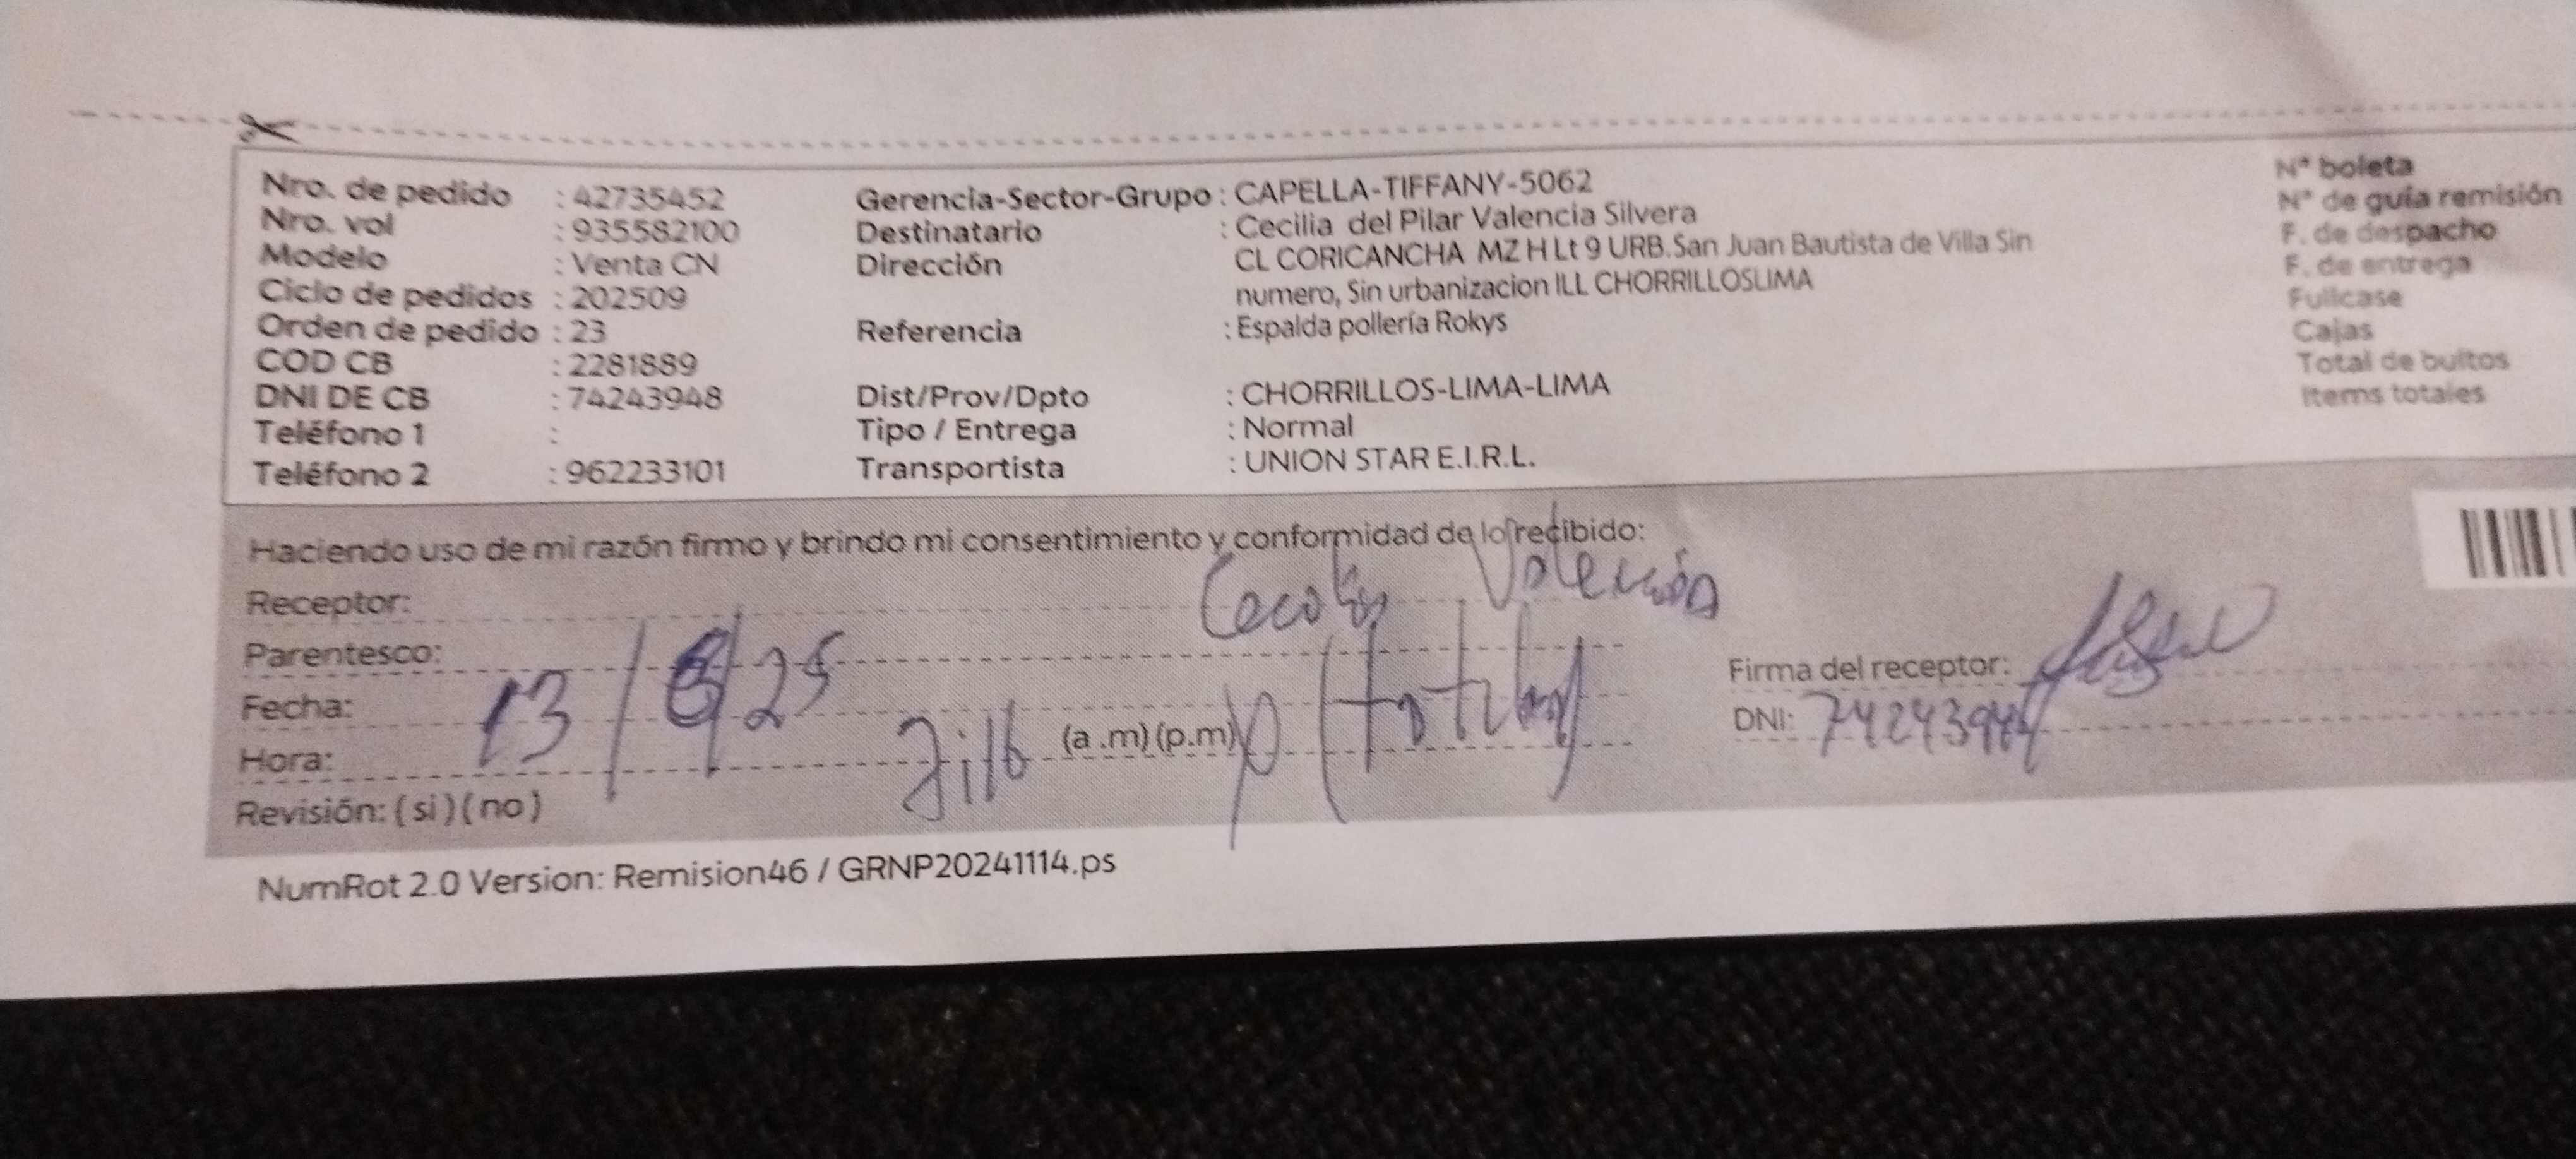 Nro. de pedido : 42735452
Nro. vol : 935582100
Modelo : Venta CN
Ciclo de pedidos : 202509
Orden de pedido : 23
COD CB : 2281889
DNI DE CB : 74243948
Teléfono 1 :
Teléfono 2 : 962233101
Gerencia-Sector-Grupo : CAPELLA-TIFFANY-5062
Destinatario : Cecilia del Pilar Valencia Silvera
Dirección CL CORICANCHA MZ H Lt 9 URB.San Juan Bautista de Villa Sin
numero, Sin urbanizacion ILL CHORRILLOSLIMA
Referencia : Espalda pollería Rokys
Dist/Prov/Dpto : CHORRILLOS-LIMA-LIMA
Tipo / Entrega : Normal
Transportista : UNION STAR E.I.R.L.
N° boleta
N° de guía remisión
F. de despacho
F. de entrega
Fullcase
Cajas
Total de bultos
Items totales
Haciendo uso de mi razón firmo y brindo mi consentimiento y conformidad de lo recibido:
Receptor: Valencia
Parentesco:
Fecha: 13/ /25
Hora: (a .m) (p.m)
Revisión: ( si ) ( no )
Firma del receptor:
DNI:
NumRot 2.0 Version: Remision46 / GRNP20241114.ps